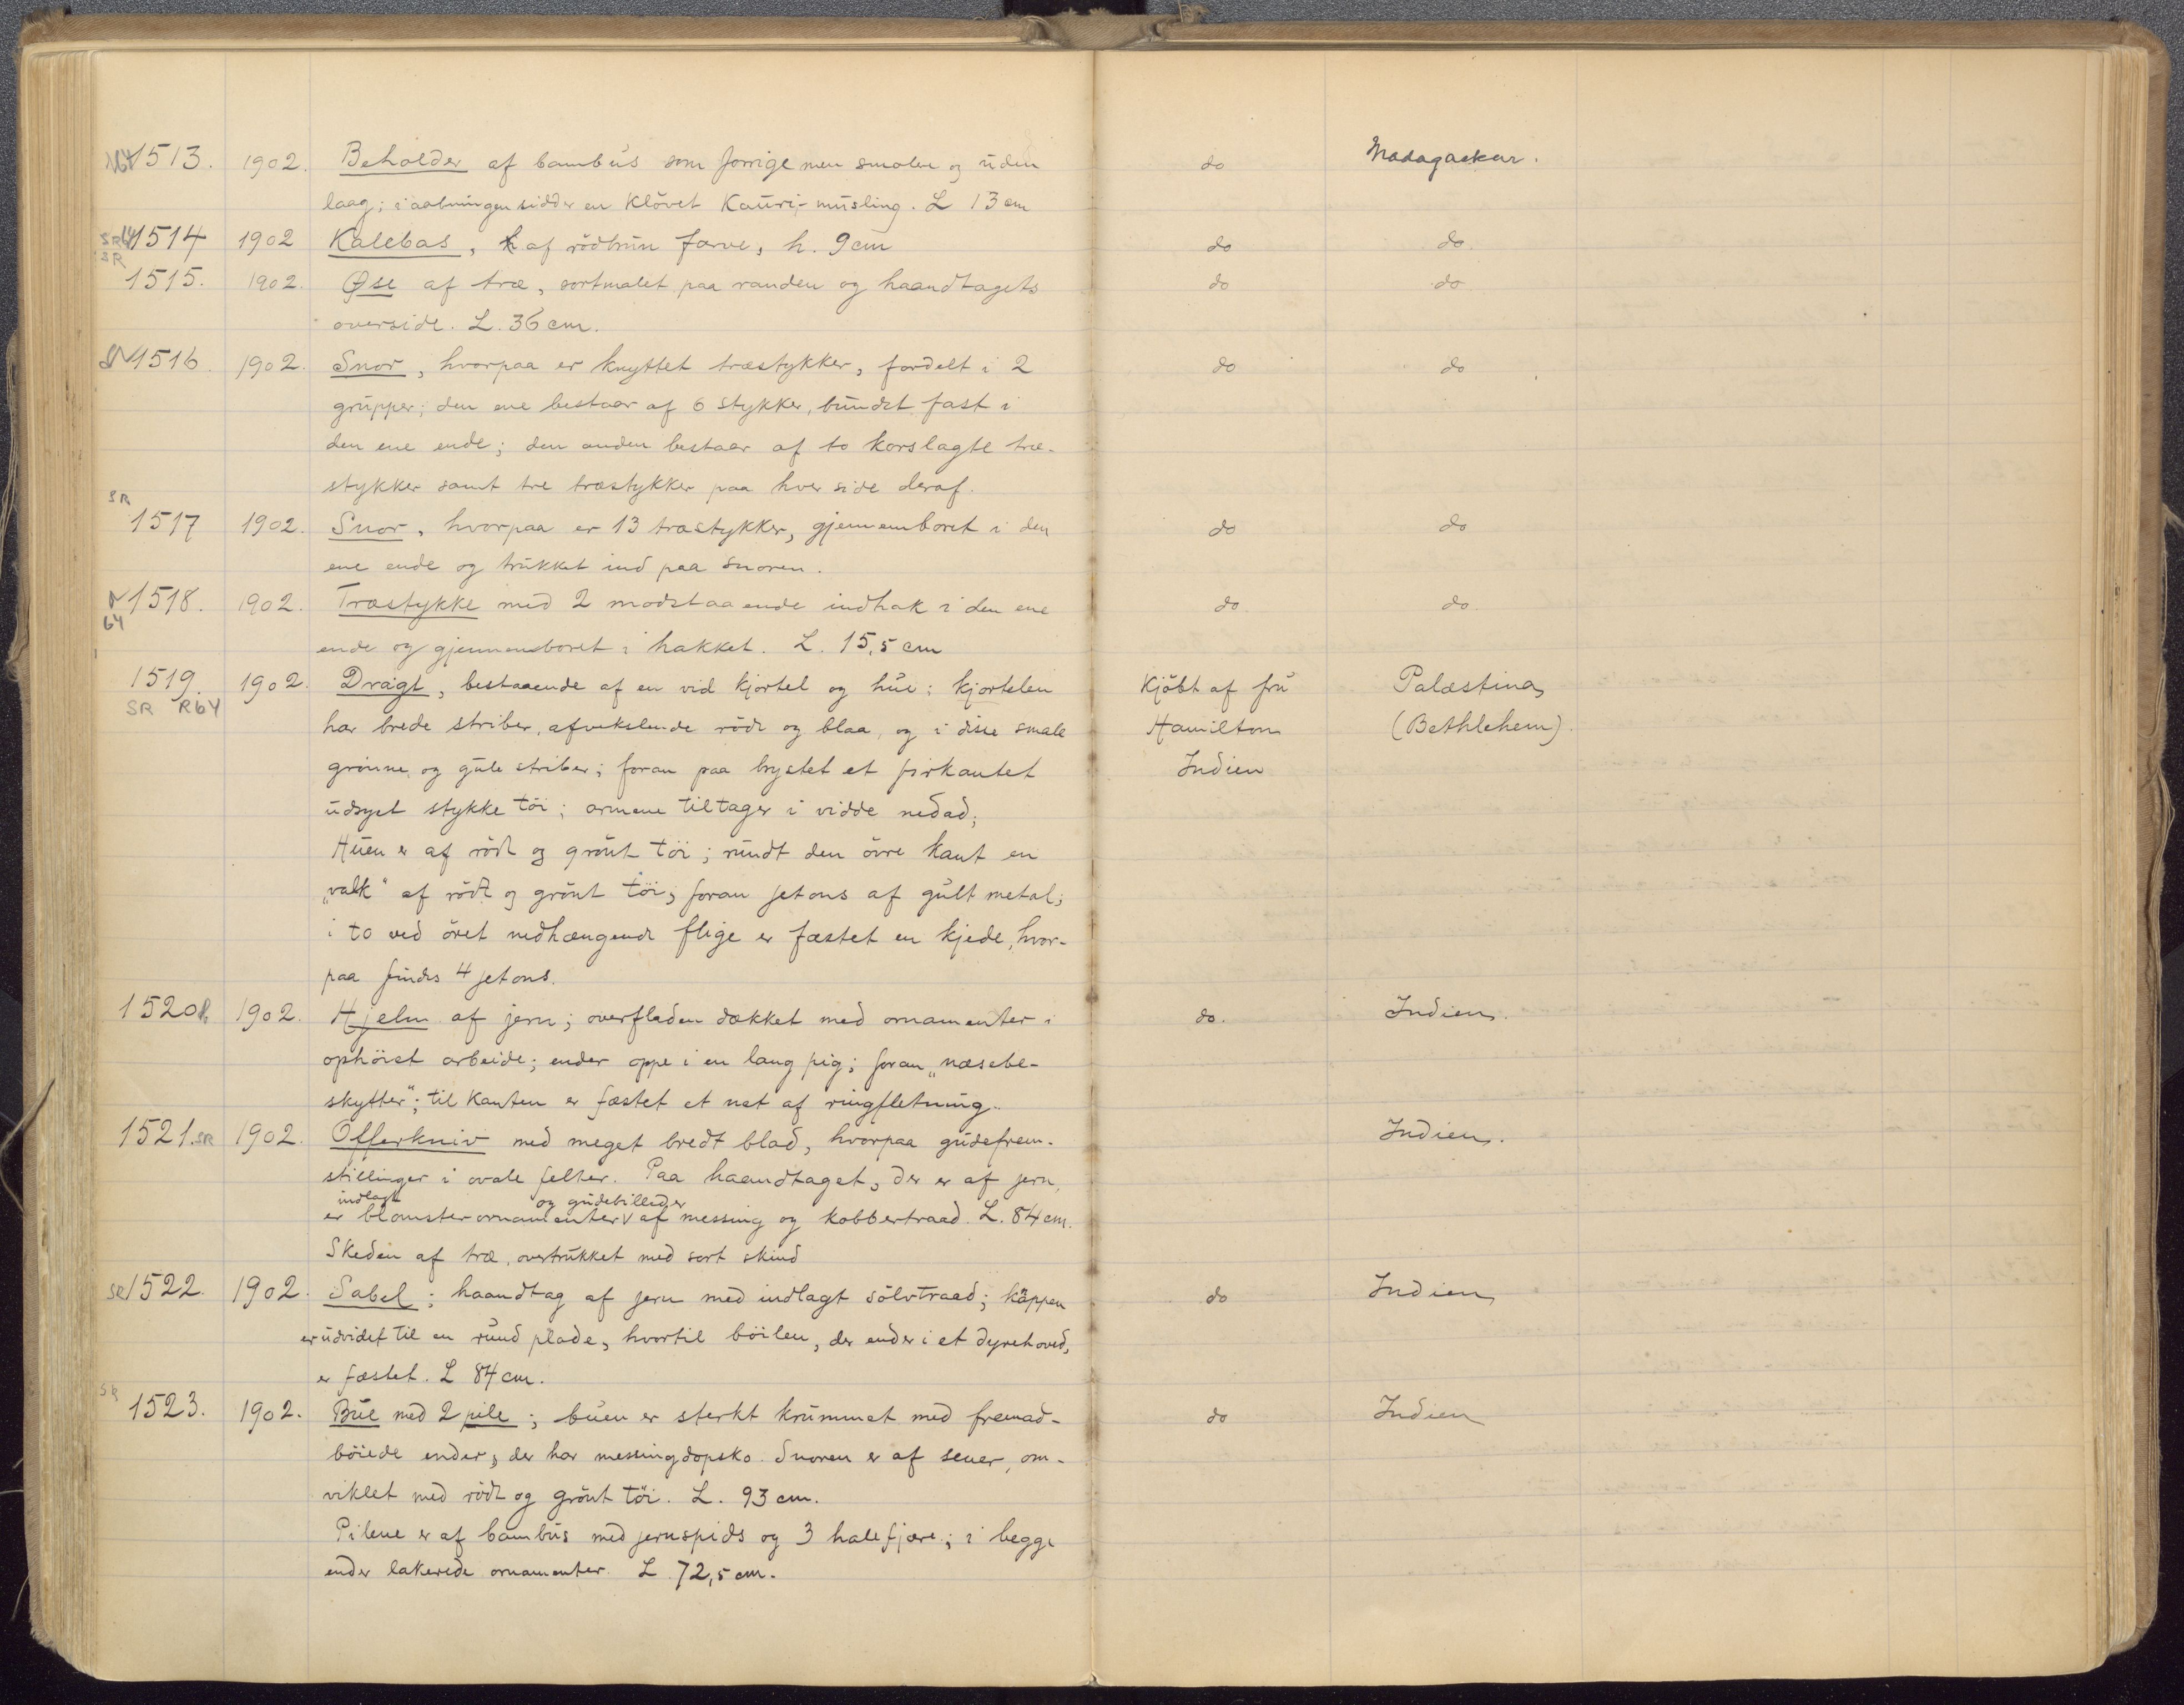 1513. 1902. Beholder af bambus som forrige men smalere og uden do Madagaskar.
laag; i aabningen sidder en kløvet Kauri-musling. L 13 cm
SR 1514 1902 Kalebas, af rödbrun farve, h. 9 cm do do.
SR
1515. 1902. Øse af træ, sortmalet paa randen og haandtagets do do
overside. L. 36 cm.
1516. 1902. Snor, hvorpaa er knyttet træstykker, fordelt i 2 do do
grupper; den ene bestaar af 6 stykker, bundet fast i
den ene ende; den anden bestaar af to korslagte træ-
stykker samt tre træstykker paa hver side deraf.
SR
1517 1902. Snor, hvorpaa er 13 træstykker, gjennemboret i den do do
ene ende og trukket ind paa snoren.
1518. 1902. Træstykke med 2 modstaaende indhak i den ene do do
64
ende og gjennemboret i hakket. L. 15,5 cm
1519. 1902. Dragt, bestaaende af en vid kjortel og hue; kjortelen Kjöbt af fru Palæstina,
SR R64 har brede striber, afvekslende röde og blaa, og i disse smale Hamilton (Bethlehem).
grönne og gule striber; foran paa brystet et firkantet Indien
udsyet stykke töi; ermene tiltager i vidde nedad;
Huen er af rödt og grönt töi; rundt den övre kant en
„valk" af rödt og grönt töi, foran jetons af gult metal;
i to ved öret nedhængende flige er fæstet en kjede, hvor-
paa findes 4 jetons.
1520 R 1902. Hjelm af jern; overfladen dækket med ornamenter i do. Indien.
ophöiet arbeide; ender oppe i en lang pig; foran „næsebe-
skytter"; til kanten er fæstet et net af ringfletning.
1521. SR 1902. Offerkniv med meget bredt blad, hvorpaa gudefrem- Indien.
stillinger i ovale felter. Paa haandtaget, der er af jern,
indlagt og gudebilleder
er blomsterornamenter af messing og kobbertraad. L. 84 cm.
Skeden af træ, overtrukket med sort skind
SR 1522. 1902. Sabel; haandtag af jern med indlagt sölvtraad; kappen do Indien
er udvidet til en rund plade, hvortil böilen, der ender i et dyrehoved,
er fæstet. L 84 cm.
SR
1523. 1902. Bue med 2 pile; buen er sterkt krummet med fremad- do Indien
böiede ender, der har messingdopsko. Snoren er af sener, om-
viklet med rödt og grönt töi. L. 93 cm.
Pilene er af bambus med jernspids og 3 halefjære; i begge
ender lakerede ornamenter. L. 72,5 cm.